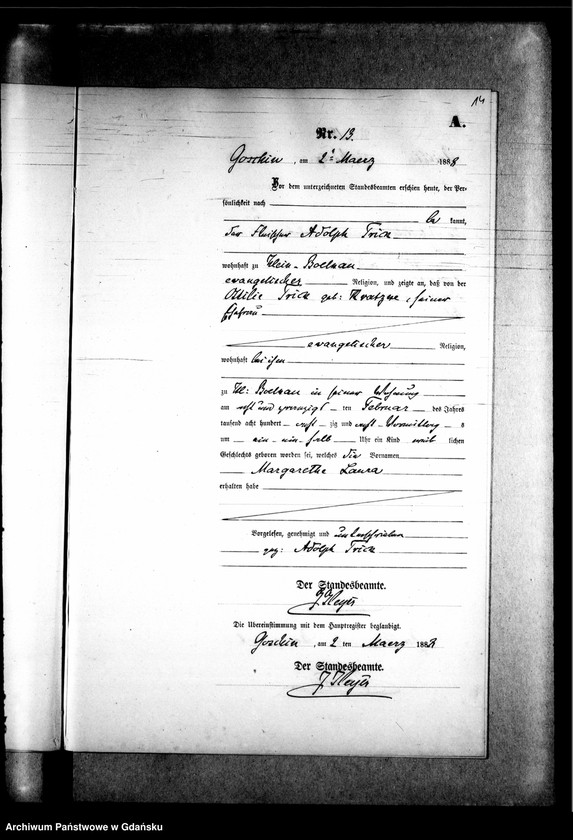 14
A.
Nr. 13.
Goschin, am 2t Maerz 1888
Vor dem unterzeichneten Standesbeamten erschien heute, der Per-
sönlichkeit nach
be kannt,
der Fleischer Adolph Trick
wohnhaft zu Klein-Boelkau
evangelischer Religion, und zeigte an, daß von der
Ottilie Trick geb: , seiner
Ehefrau
evangelischer Religion,
wohnhaft bei ihm
zu Kl: Boelkau in seiner Wohnung
am acht und zwanzigsten Februar des Jahres
tausend acht hundert acht zig und acht Vormittag s
um ein-ein-halb Uhr ein Kind weib lichen
Geschlechts geboren worden sei, welches die Vornamen
Margarethe Laura
erhalten habe
Vorgelesen, genehmigt und unterschrieben
gez: Adolph Trick
Der Standesbeamte.
J Heyer
Die Übereinstimmung mit dem Hauptregister beglaubigt.
Goschin, am 2 ten Maerz 1888
Der Standesbeamte.
J Heyer
Archiwum Państwowe w Gdańsku